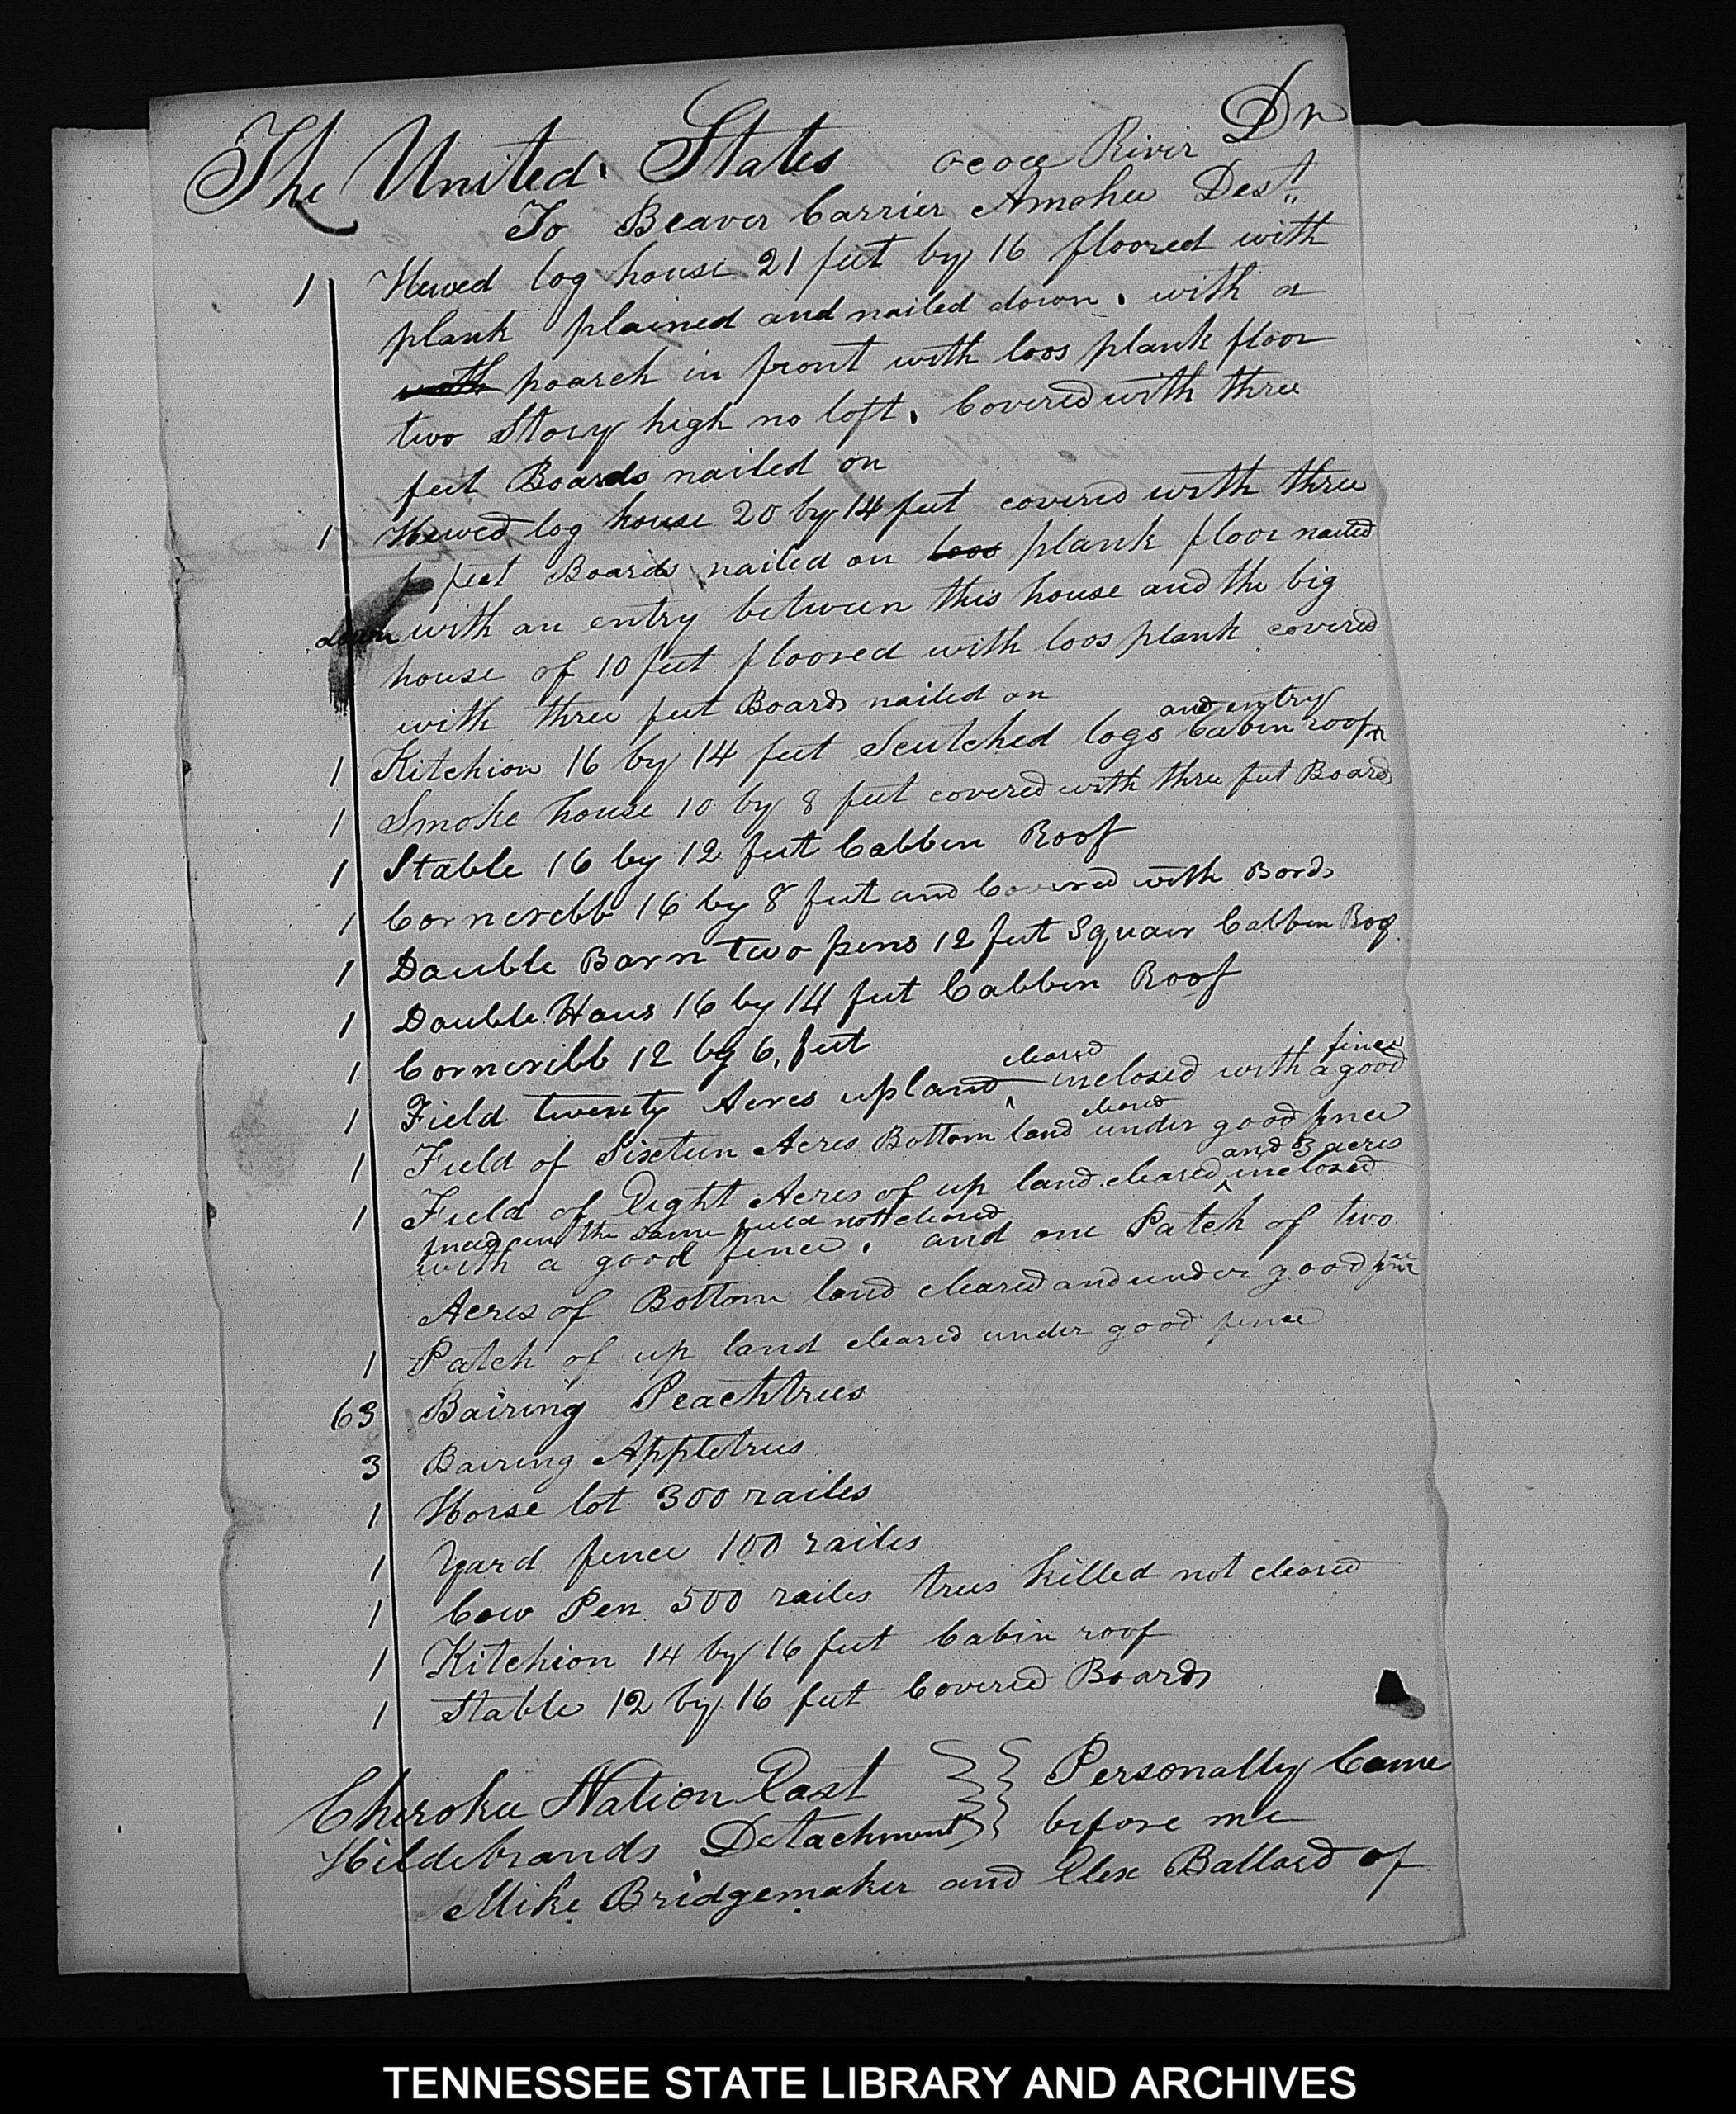 The United States Dr
ocoee River
To Beaver Carrier Amohee Dest
1 Hewed log house 21 feet by 16 floored with
plank plained and nailed down. with a
with poarch in front with loos plank floor
two Story high no loft. Covered with three
feet Boards nailed on
1 Hewed log house 20 by 14 feet covered with three
feet Boards nailed on loos plank floor nailed
down with an entry between this house and the big
house of 10 feet floored with loos plank covered
with three feet Boards nailed on
and entry
1 Kitchion 16 by 14 feet Scutched logs Cabin roof
1 Smoke house 10 by 8 feet covered with three feet Boards
1 Stable 16 by 12 feet Cabben Roof
1 Corncrebb 16 by 8 feet and Covered with Bords
1 Dauble Barn two pens 12 feet Squair Cabben Roof
1 Double Haus 16 by 14 feet Cabben Roof
1 Corncribb 12 by 6, feet
cleared fince
1 Field twenty Acres upland inclosed with a good
cleared
1 Field of Sixteen Acres Bottom land under good fence
and 3 acres
1 Field of Eight Acres of up land cleared inclosed
in the same field not cleared
with a good fence. and one Patch of two
Acres of Bottom land cleared and under good fence
1 Patch of up land cleared under good fence
63 Bairing Peachtrees
3 Bairing Appletrees
1 Horse lot 300 railes
1 Yard fence 100 railes
1 Cow Pen 500 railes trees killed not cleared
1 Kitchion 14 by 16 feet Cabin roof
1 Stable 12 by 16 feet Covered Boards
Cherokee Nation East Personally Came
Hildebrands Detachment before me
Mike Bridgemaker and Elex Ballard of
TENNESSEE STATE LIBRARY AND ARCHIVES